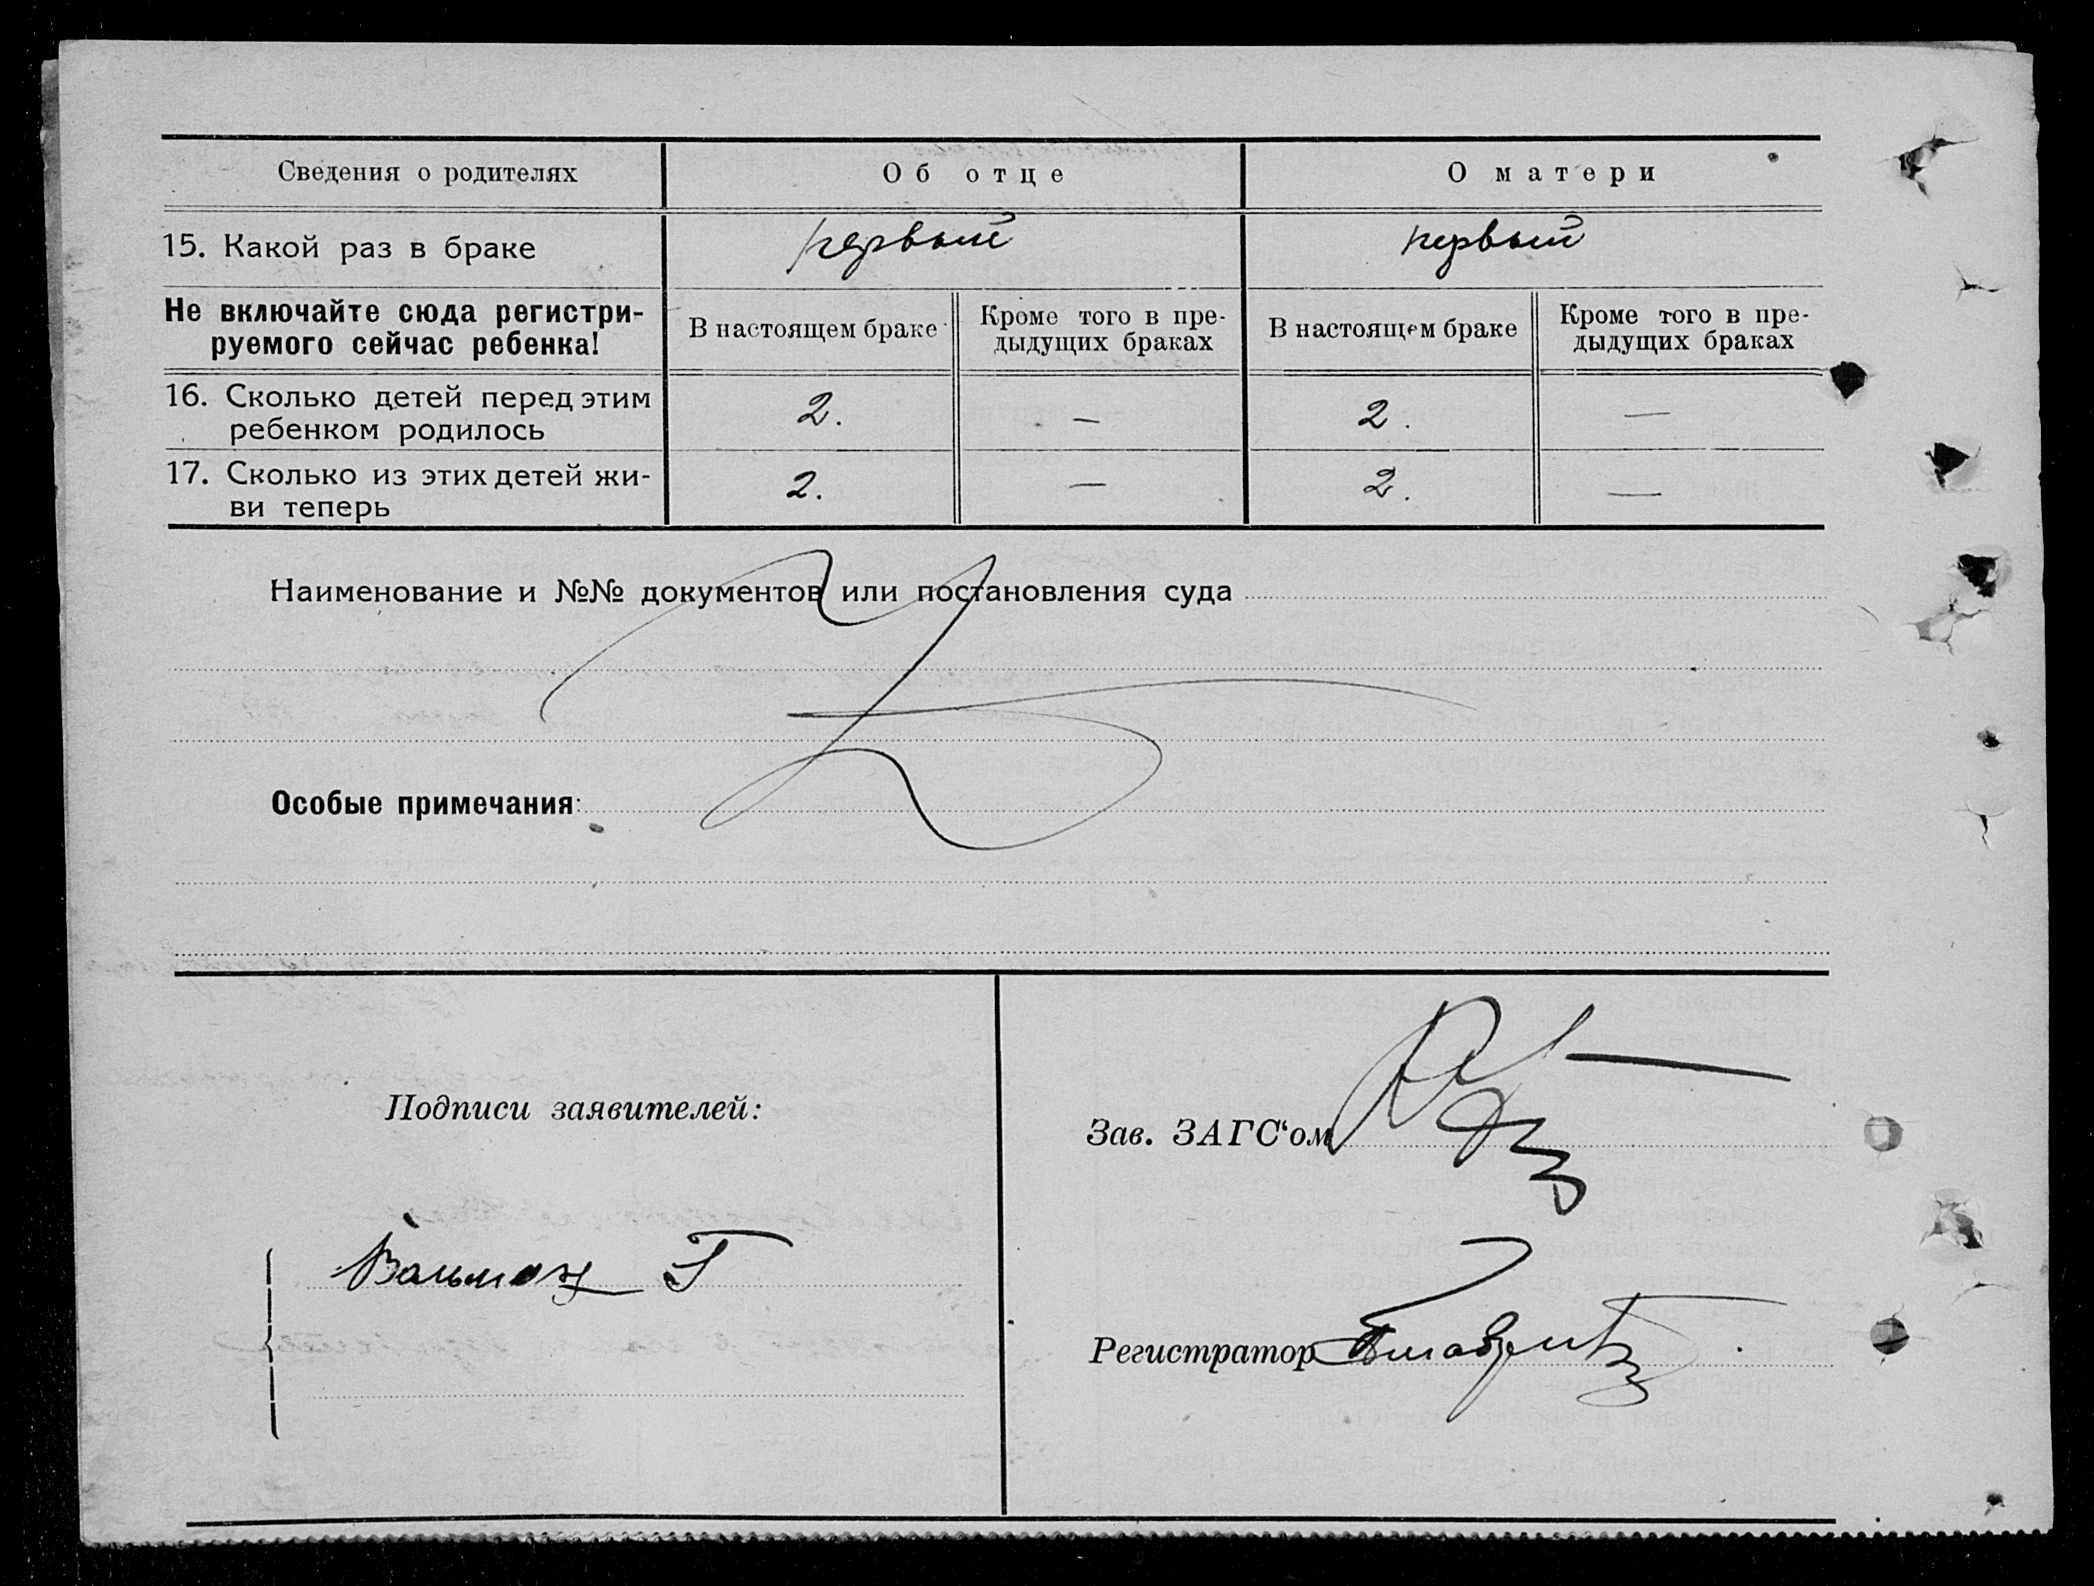 Сведения о родителях
Об отце
О матери
15. Какой раз в браке
первый
первый
Не включайте сюда регистри-
руемого сейчас ребенка!
В настоящем браке
Кроме того в пре-
дыдущих браках
В настоящем браке
Кроме того в пре-
дыдущих браках
16. Сколько детей перед этим
ребенком родилось
2.
—
2.
—
17. Сколько из этих детей жи-
ви теперь
2.
—
2.
—
Наименование и №№ документов или постановления суда
Особые примечания:
Подписи заявителей:
Зав. ЗАГС‘ом
Г
Регистратор